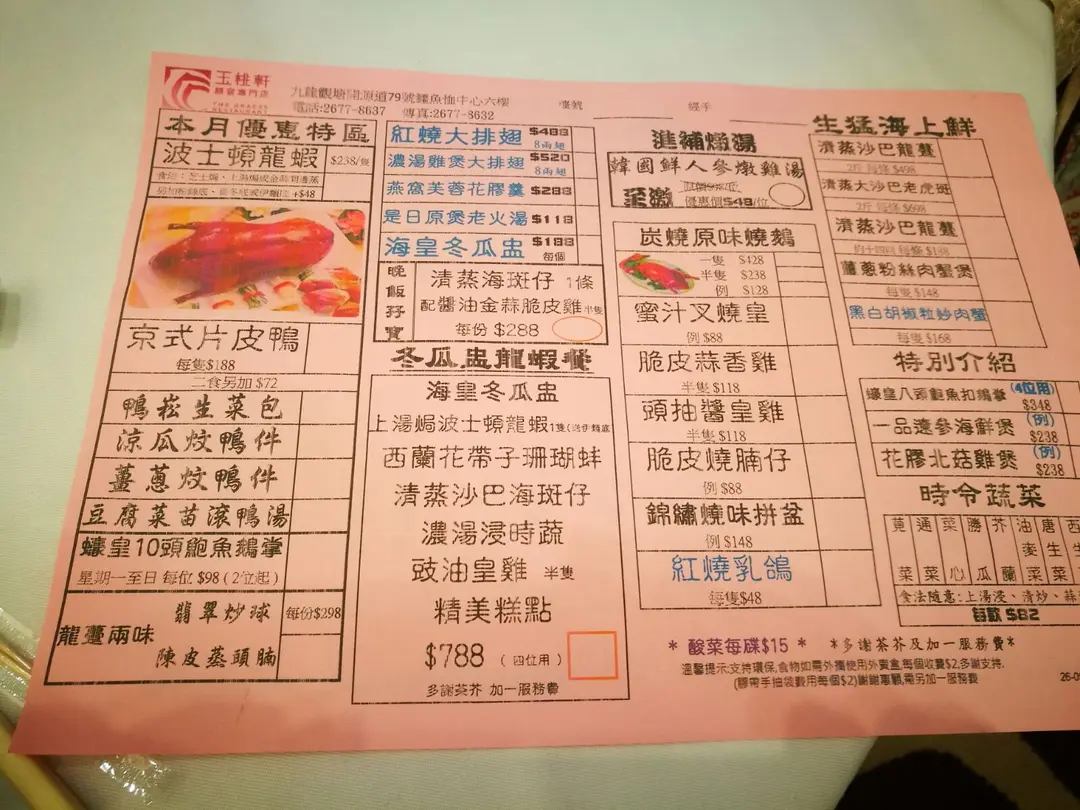 玉桃軒
THE GRACES
RESTAURANT
九龍觀塘開源道79號鱷魚恤中心六樓
電話:2677-8637 傳真:2677-8632
檯號
經手
本月優惠特區
波士頓龍蝦 $238/隻
另加粉絲底、雞冬底或伊麵底 +$48
京式片皮鴨
每隻$188
二食另加 $72
鴨崧生菜包
涼瓜炆鴨件
薑蔥炆鴨件
豆腐菜苗滾鴨湯
蠔皇10頭鮑魚鵝掌
星期一至日 每位 $98 (2位起)
龍躉兩味
翡翠炒球
陳皮蒸頭腩
每份$298
紅燒大排翅 $488
8兩翅
濃湯雞煲大排翅 $520
8兩翅
燕窩芙蓉花膠羹 $288
是日原煲老火湯 $118
海皇冬瓜盅 $188
每個
晚飯孖寶
清蒸海斑仔 1條
配醬油金蒜脆皮雞 半隻
每份 $288
冬瓜盅龍蝦餐
海皇冬瓜盅
上湯焗波士頓龍蝦 1隻(送伊麵底
西蘭花帶子珊瑚蚌
清蒸沙巴海斑仔
濃湯浸時蔬
豉油皇雞 半隻
精美糕點
$788 (四位用)
多謝茶芥 加一服務費
進補燉湯
韓國鮮人參燉雞湯
優惠價$48/位
炭燒原味燒鵝
一隻 $428
半隻 $238
例 $128
蜜汁叉燒皇
例 $88
脆皮蒜香雞
半隻 $118
頭抽醬皇雞
半隻 $118
脆皮燒腩仔
例 $88
錦繡燒味拼盆
例 $148
紅燒乳鴿
每隻$48
生猛海上鮮
清蒸沙巴龍躉
2斤 每條 $498
清蒸大沙巴老虎斑
2斤 每條 $698
清蒸沙巴龍躉
薑蔥粉絲肉蟹煲
每隻 $148
黑白胡椒粒炒肉蟹
每隻 $168
特別介紹
蠔皇八頭鮑魚扣鵝掌 (4位用)
$348
一品遼參海鮮煲 (例)
$238
花膠北菇雞煲 (例)
$238
時令蔬菜
莧菜
通菜
菜心
勝瓜
芥蘭
油麥菜
唐生菜
西生
食法隨意:上湯浸、清炒、蒜
每款 $82
* 酸菜每碟$15 * *多謝茶芥及加一服務費*
溫馨提示:支持環保,食物如需外攜使用外賣盒,每個收費$2,多謝支持.
(膠帶手抽袋費用每個$2)謝謝惠顧,需另加一服務費